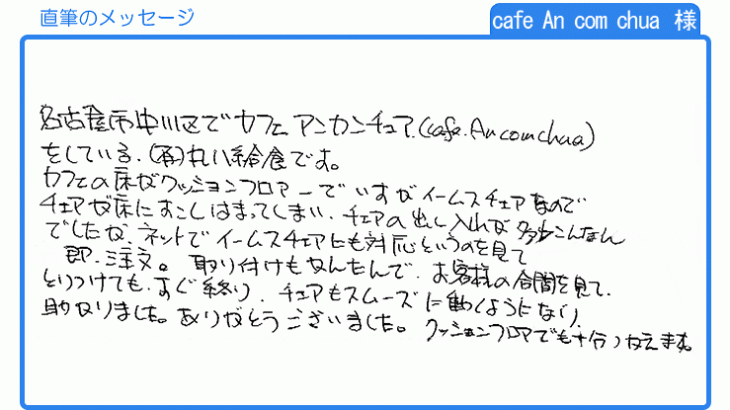 直筆のメッセージ
cafe An com chua 様
名古屋市中川区でカフェ アンカンチュア.(cafe.An com chua)
をしている.(有)丸八給食です。
カフェの床がクッションフロアーでいすがイームスチェアなので
チェアが床にすこしはまってしまい、チェアの出し入れが多少こんなん
でしたが、ネットでイームスチェアにも対応というのを見て
即.注文。取り付けもかんたんで、お客様の合間を見て.
とりつけても、すぐ終り、チェアもスムーズに動くようになり、
助かりました。ありがとうございました。クッションフロアでも十分つかえます。